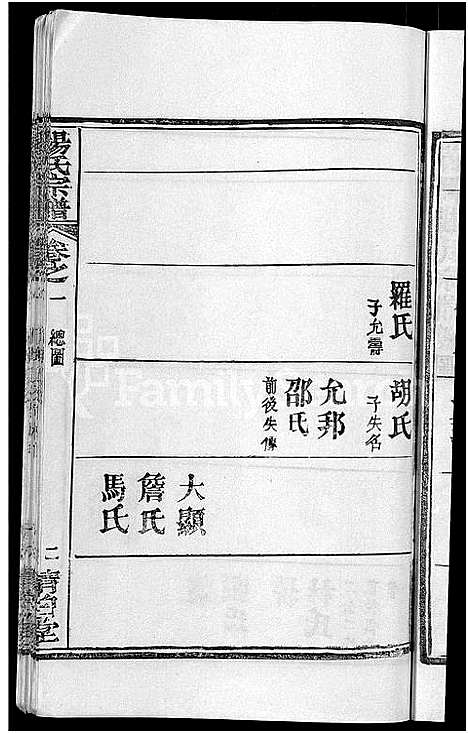 羅氏
子允壽
胡氏
子失名
允邦
邵氏
前後失傳
大顯
詹氏
馬氏
楊氏宗譜
卷之一
總圖
二
清白堂
Family